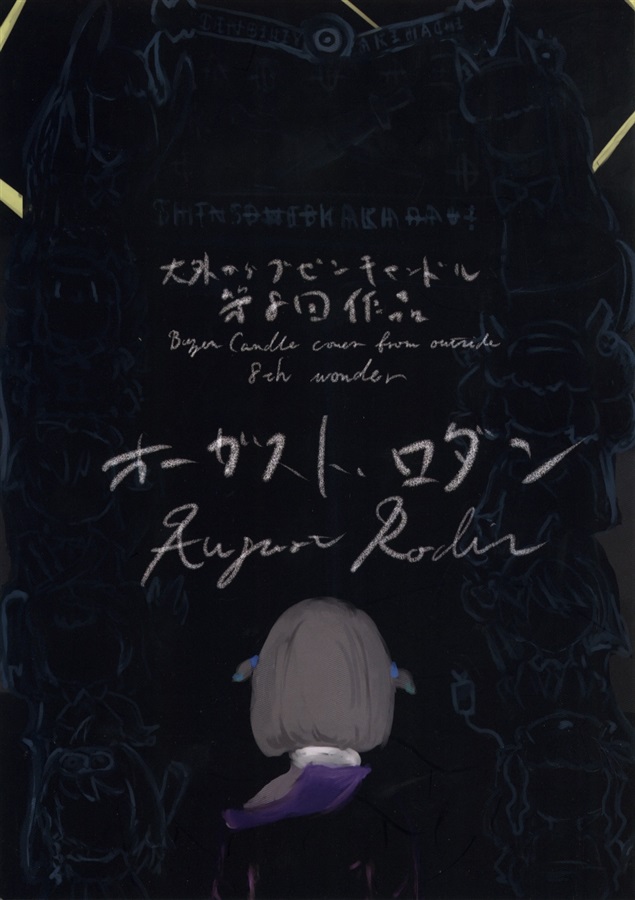 大外からブゼンキャンドル
第8回作品
Buzen Candle comes from outside
8th wonder
オーガスト、ロダン
August Rodin